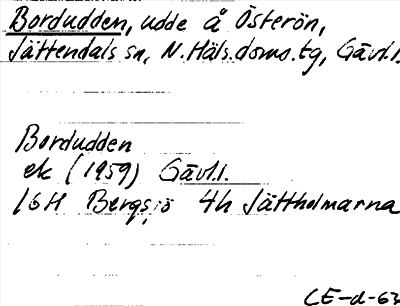 Bordudden, udde å Österön,
Jättendals sn, N.Häls.doms.tg, Gävl.l.
Bordudden
ek (1959) Gävl.l.
16H Bergsjö 4h Jättholmarna
CE-d-63